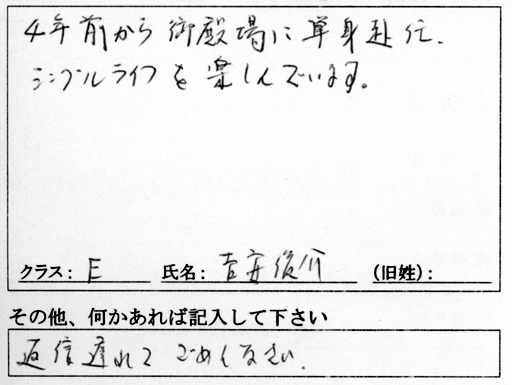 4年前から御殿場に単身赴任.
シングルライフを楽しんでいます。
クラス: E 氏名: 吉安俊介 (旧姓):
その他、何かあれば記入して下さい
返信遅れてごめんなさい.